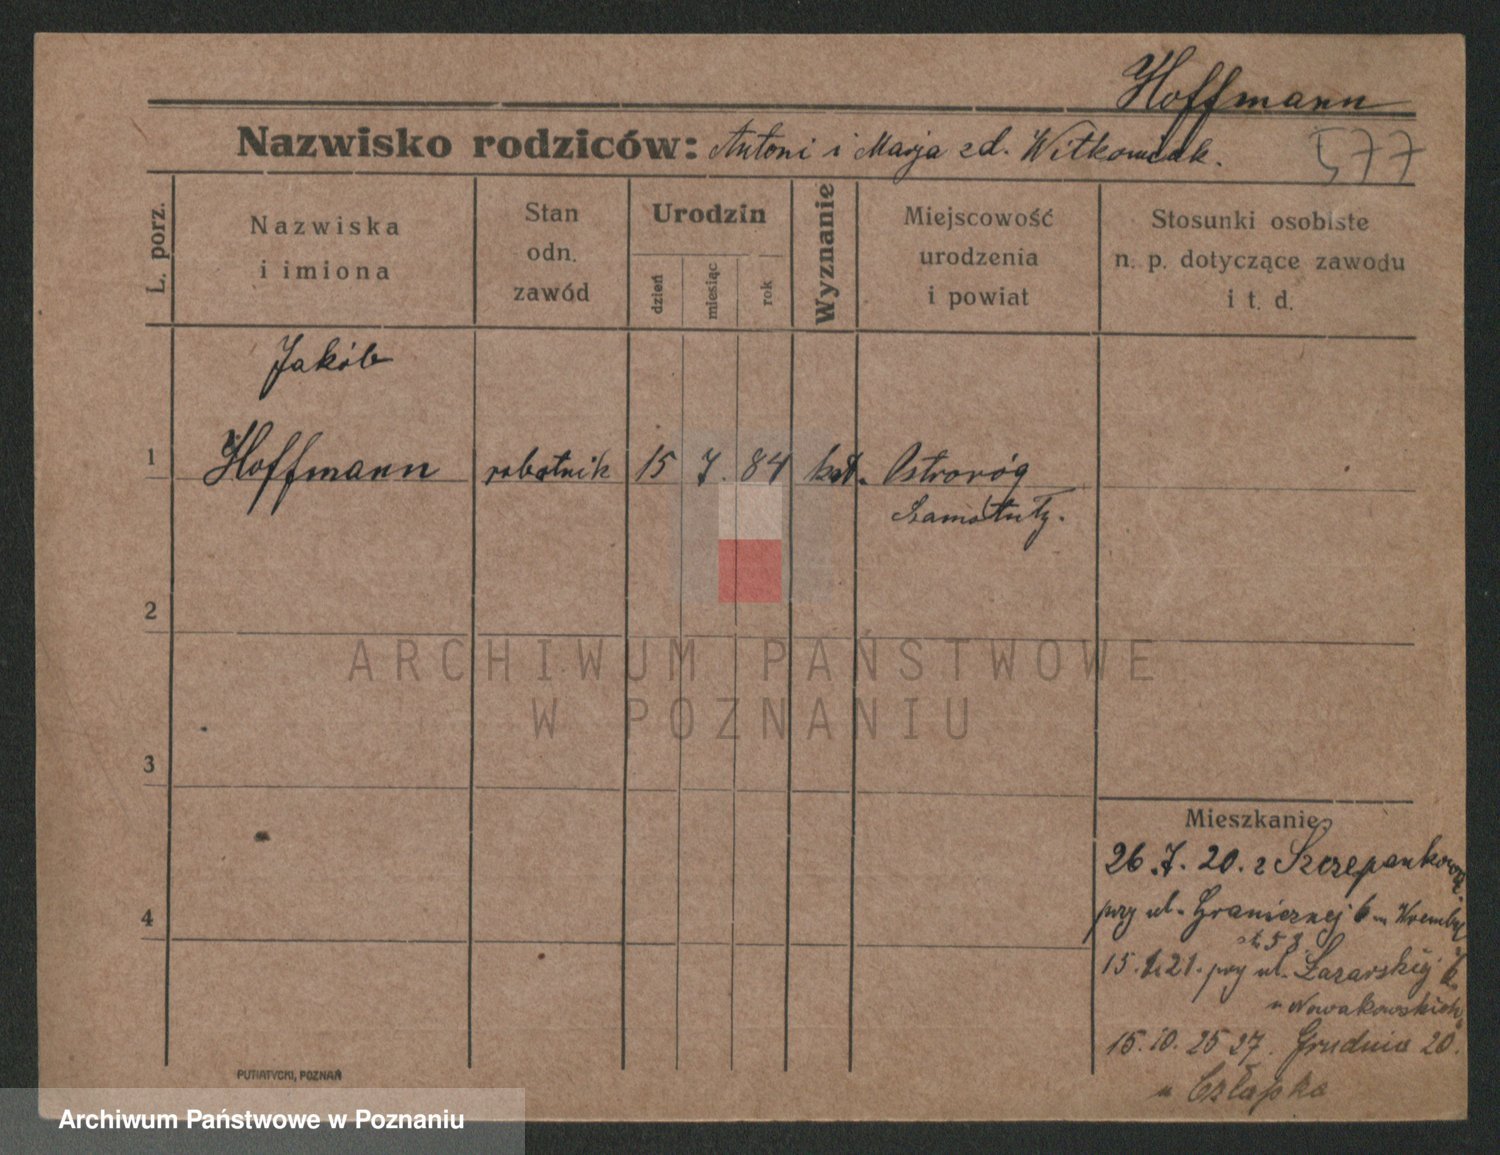 Hoffmann
Nazwisko rodziców: Antoni i Marja zd. Witkowiak.
577
L. porz.
Nazwiska
i imiona
Stan
odn.
zawód
Urodzin
dzień
miesiąc
rok
Wyznanie
Miejscowość
urodzenia
i powiat
Stosunki osobiste
n. p. dotyczące zawodu
i t. d.
Jakób
1 Hoffmann robotnik 15 7. 84 kat. Ostroróg
Szamotuły.
2
3
4
Mieszkanie
26.7.20. z Szczepankowa
przy ul. Granicznej 6
15. 21. przy ul. Łazarskiej
u Nowakowskich
15.10.25 27. Grudnia 20.
u Człapka
PUTIATYCKI, POZNAŃ
ARCHIWUM PAŃSTWOWE
W POZNANIU
Archiwum Państwowe w Poznaniu